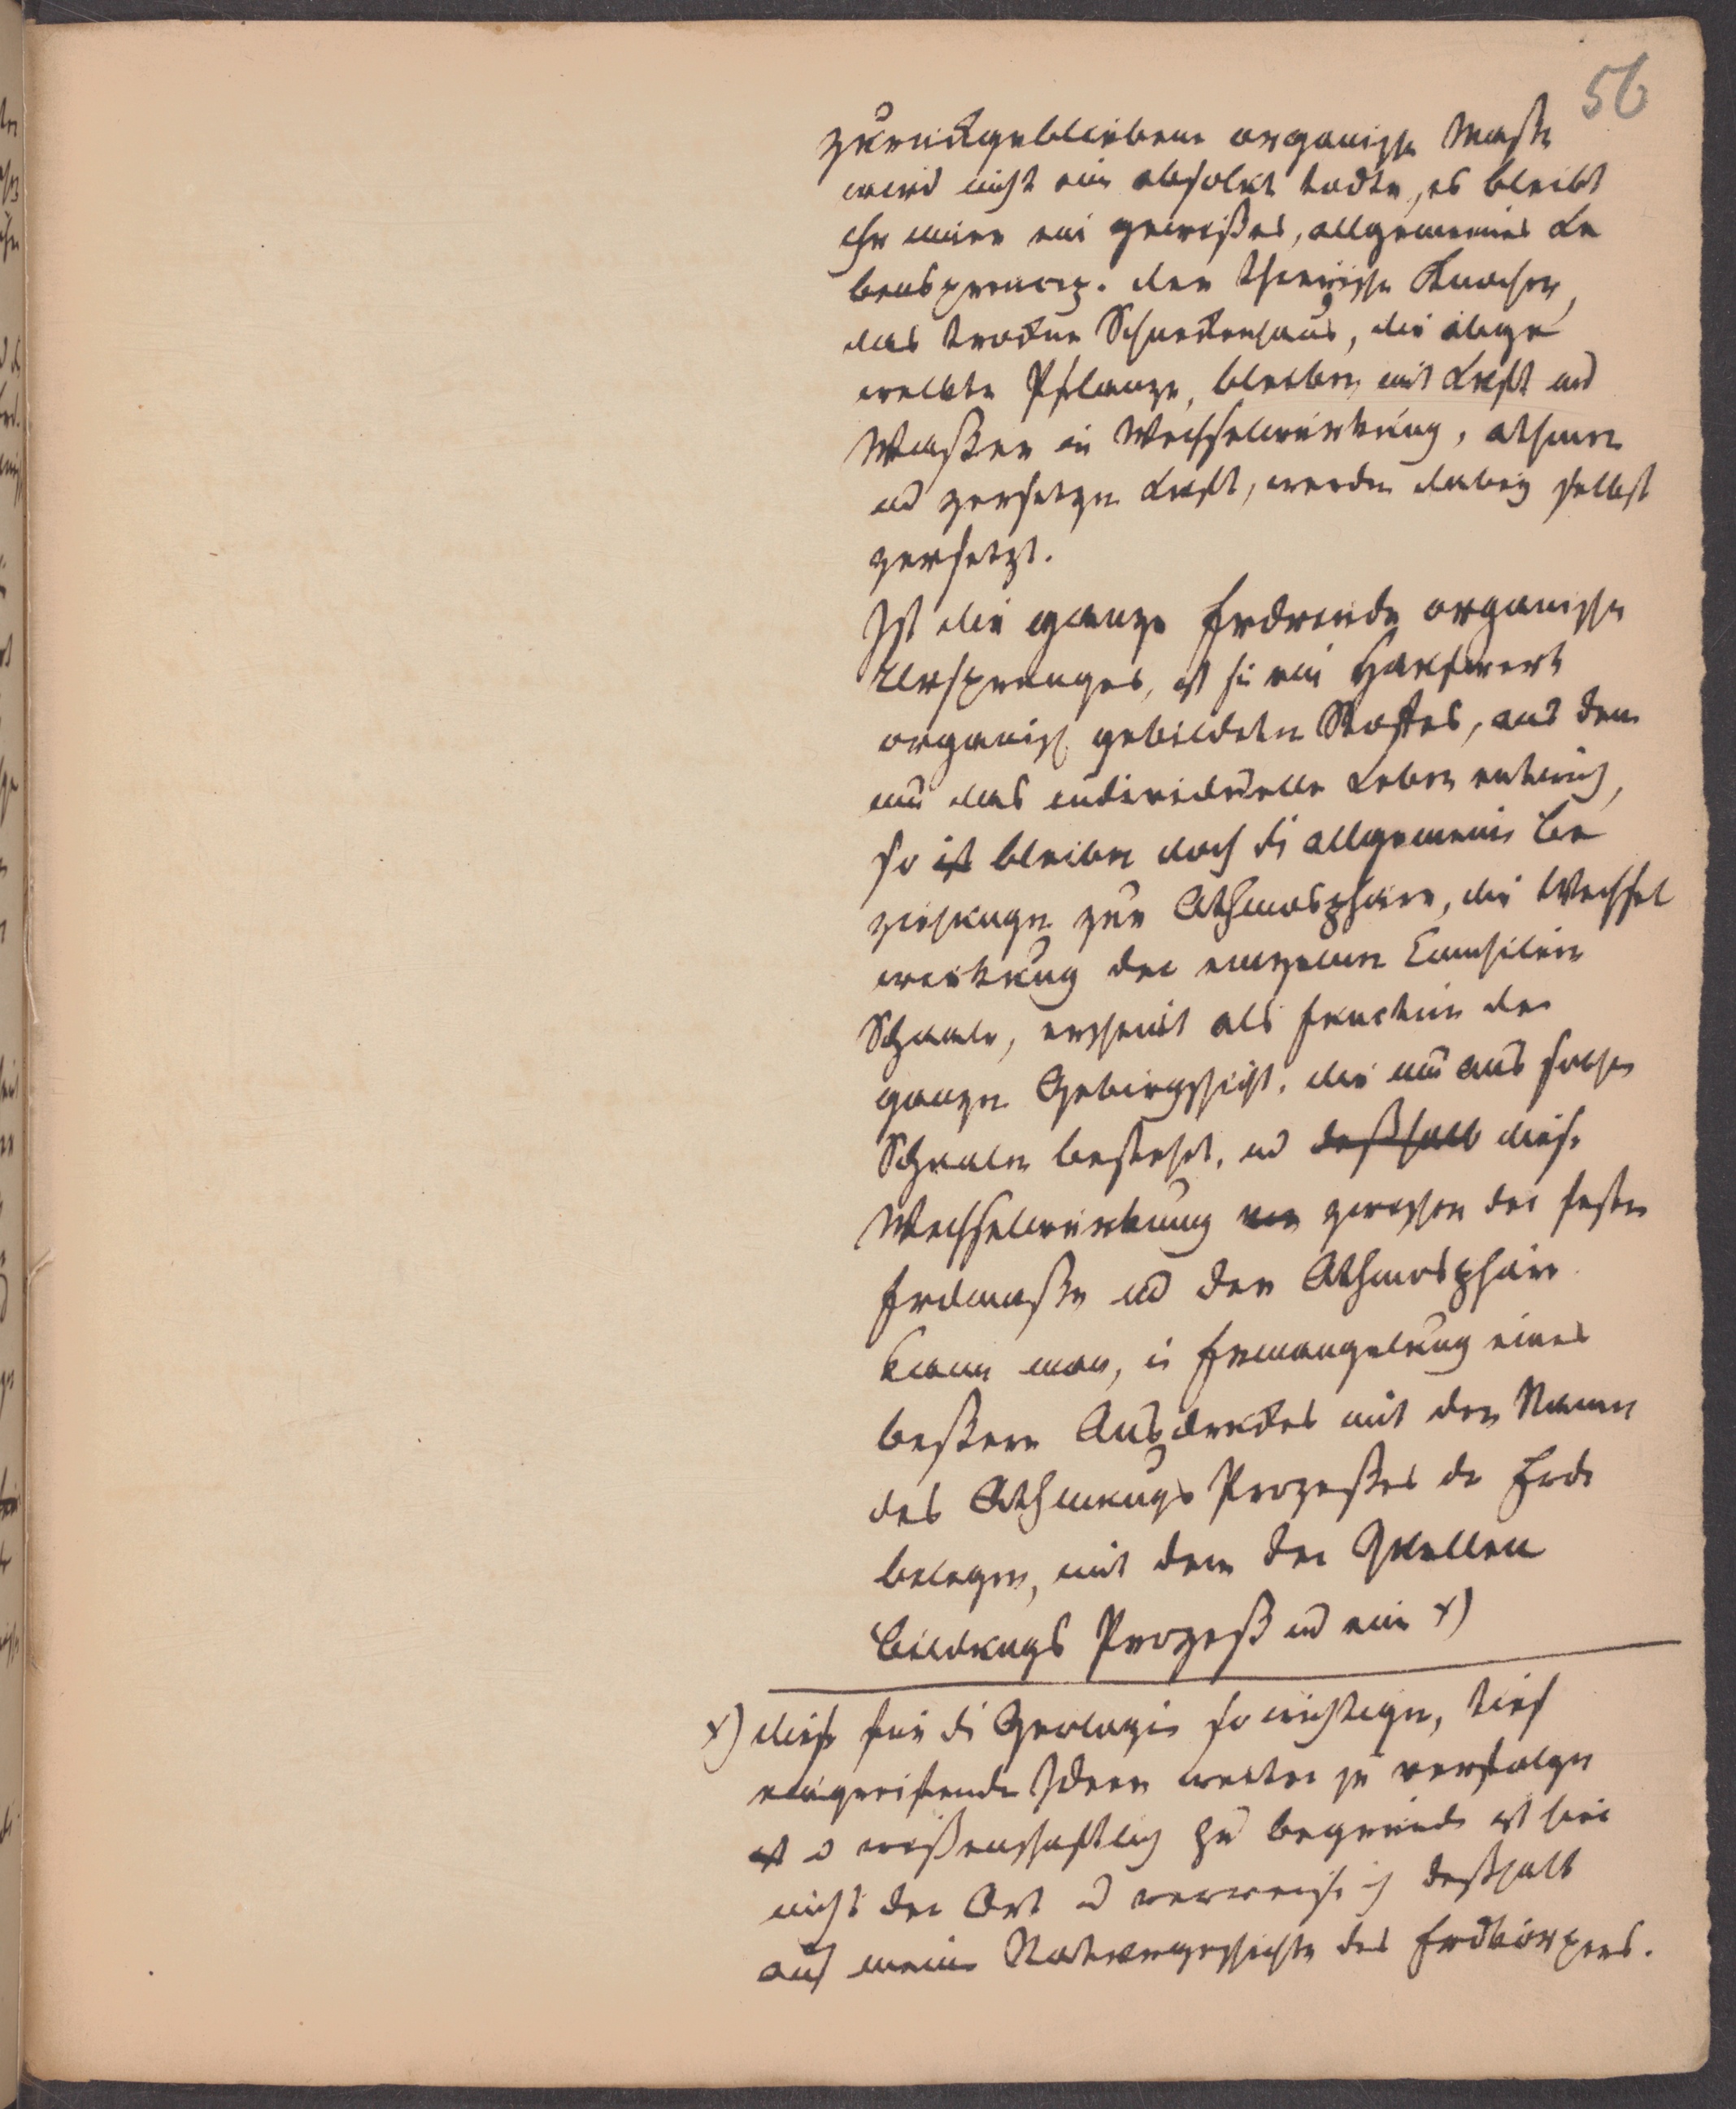 56
zurückgebliebene organische Maße
wird nicht ein absolut todte, es bleibt
ihr immer ein gewißes, allgemeines Le
bensprincip. der thierische Knochen,
das trockne Schneckenhaus, die abge
welkte Pflanze, bleiben mit Luft und
Waßer in Wechselwürkung, athmen
und zersetzen Luft, werden dabey selbst
zersetzt.
Ist die ganze Erdrinde organischen
Ursprunges, ist sie ein Haufwerk
organisch gebildeten Stoffes, aus dem
nur das individuelle Leben entwich,
so ist bleiben doch die allgemeinen Be
ziehungen zur Athmosphäre, die Wechsel
wirkung der einzelnen Conchilien
Schaale, erscheint als Function der
ganzen Gebirgsschicht, die nur aus solchen
Schaalen besteht, und deßhalb diese
Wechselwürkung zwischen der festen
Erdmaße und der Athmosphäre
kann man, in Ermangelung eines
beßeren Ausdruckes mit dem Namen
des Athmungs Prozeßes der Erde
belegen, mit dem der Quellen
bildungs Prozeß und ein x)
x) diese für die Geologie so wichtigen, tief
eingreifende Ideen weiter zu verfolgen
ist u wißenschaftlich zu begründen ist hier
nicht der Ort u verweise ich deßhalb
auf meine Naturgeschichte des Erdkörpers.